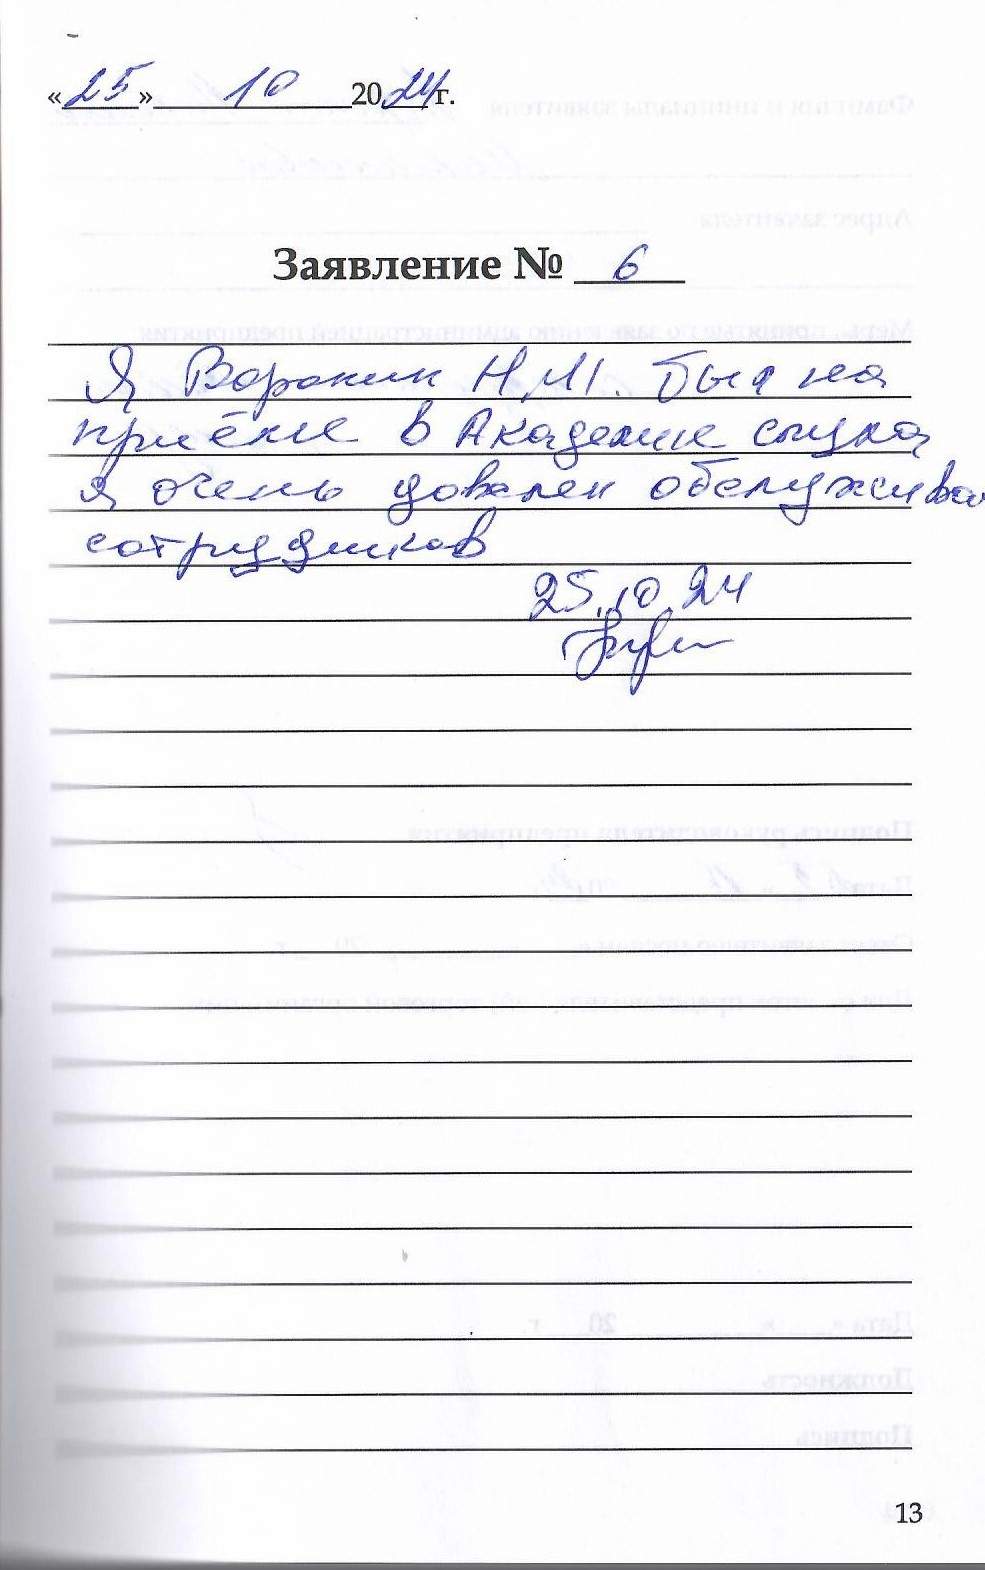 «25» 10 2024г.
Заявление № 6
Я Воронин Н.М. был на
приёме в Академие слуха
я очень доволен обслужива
сотрудников
25.10.24
13